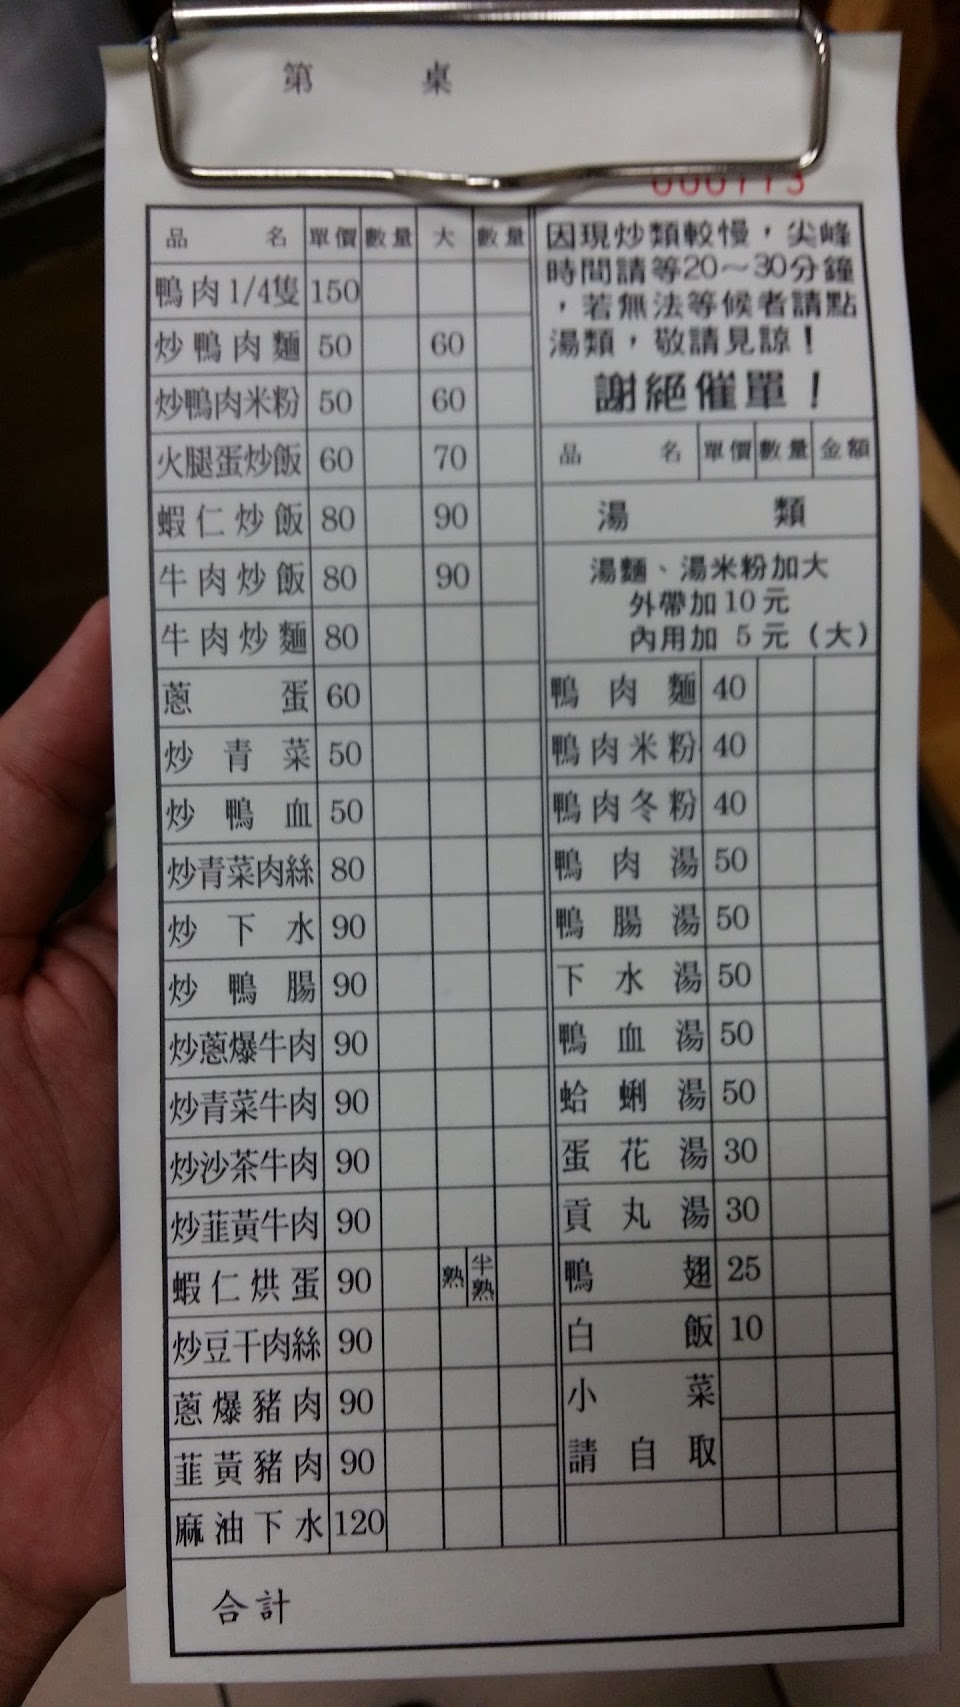 第 桌
品 名 單價 數量 大 數量
鴨肉1/4隻 150
炒鴨肉麵 50 60
炒鴨肉米粉 50 60
火腿蛋炒飯 60 70
蝦仁炒飯 80 90
牛肉炒飯 80 90
牛肉炒麵 80
蔥蛋 60
炒青菜 50
炒鴨血 50
炒青菜肉絲 80
炒下水 90
炒鴨腸 90
炒蔥爆牛肉 90
炒青菜牛肉 90
炒沙茶牛肉 90
炒韮黃牛肉 90
蝦仁烘蛋 90 熟 半熟
炒豆干肉絲 90
蔥爆豬肉 90
韮黃豬肉 90
麻油下水 120
因現炒類較慢，尖峰
時間請等20～30分鐘
，若無法等候者請點
湯類，敬請見諒！
謝絕催單！
品 名 單價 數量 金額
湯 類
湯麵、湯米粉加大
外帶加10元
內用加 5元（大）
鴨肉麵 40
鴨肉米粉 40
鴨肉冬粉 40
鴨肉湯 50
鴨腸湯 50
下水湯 50
鴨血湯 50
蛤蜊湯 50
蛋花湯 30
貢丸湯 30
鴨翅 25
白飯 10
小菜
請自取
合計